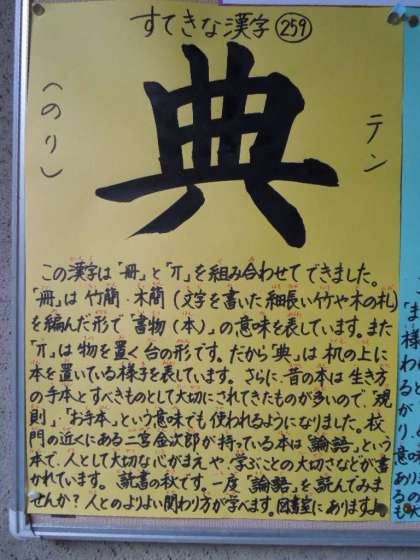 すてきな漢字 259
典
テン
(のり)
この漢字は「冊」と「丌」を組み合わせてできました。
「冊」は竹簡・木簡(文字を書いた細長い竹や木の札)
を編んだ形で「書物(本)」の意味を表しています。また
「丌」は物を置く台の形です。だから「典」は机の上に
本を置いている様子を表しています。さらに、昔の本は生き方
の手本とすべきものとして大切にされてきたものが多いので、「規
則」・「お手本」という意味でも使われるようになりました。校
門の近くにある二宮金次郎が持っている本は「論語」という
本で、人として大切な心がまえや、学ぶことの大切さなどが書
かれています。読書の秋です。一度「論語」を読んでみま
せんか?人とのよりよい関わり方が学べます。図書室にありますよ。